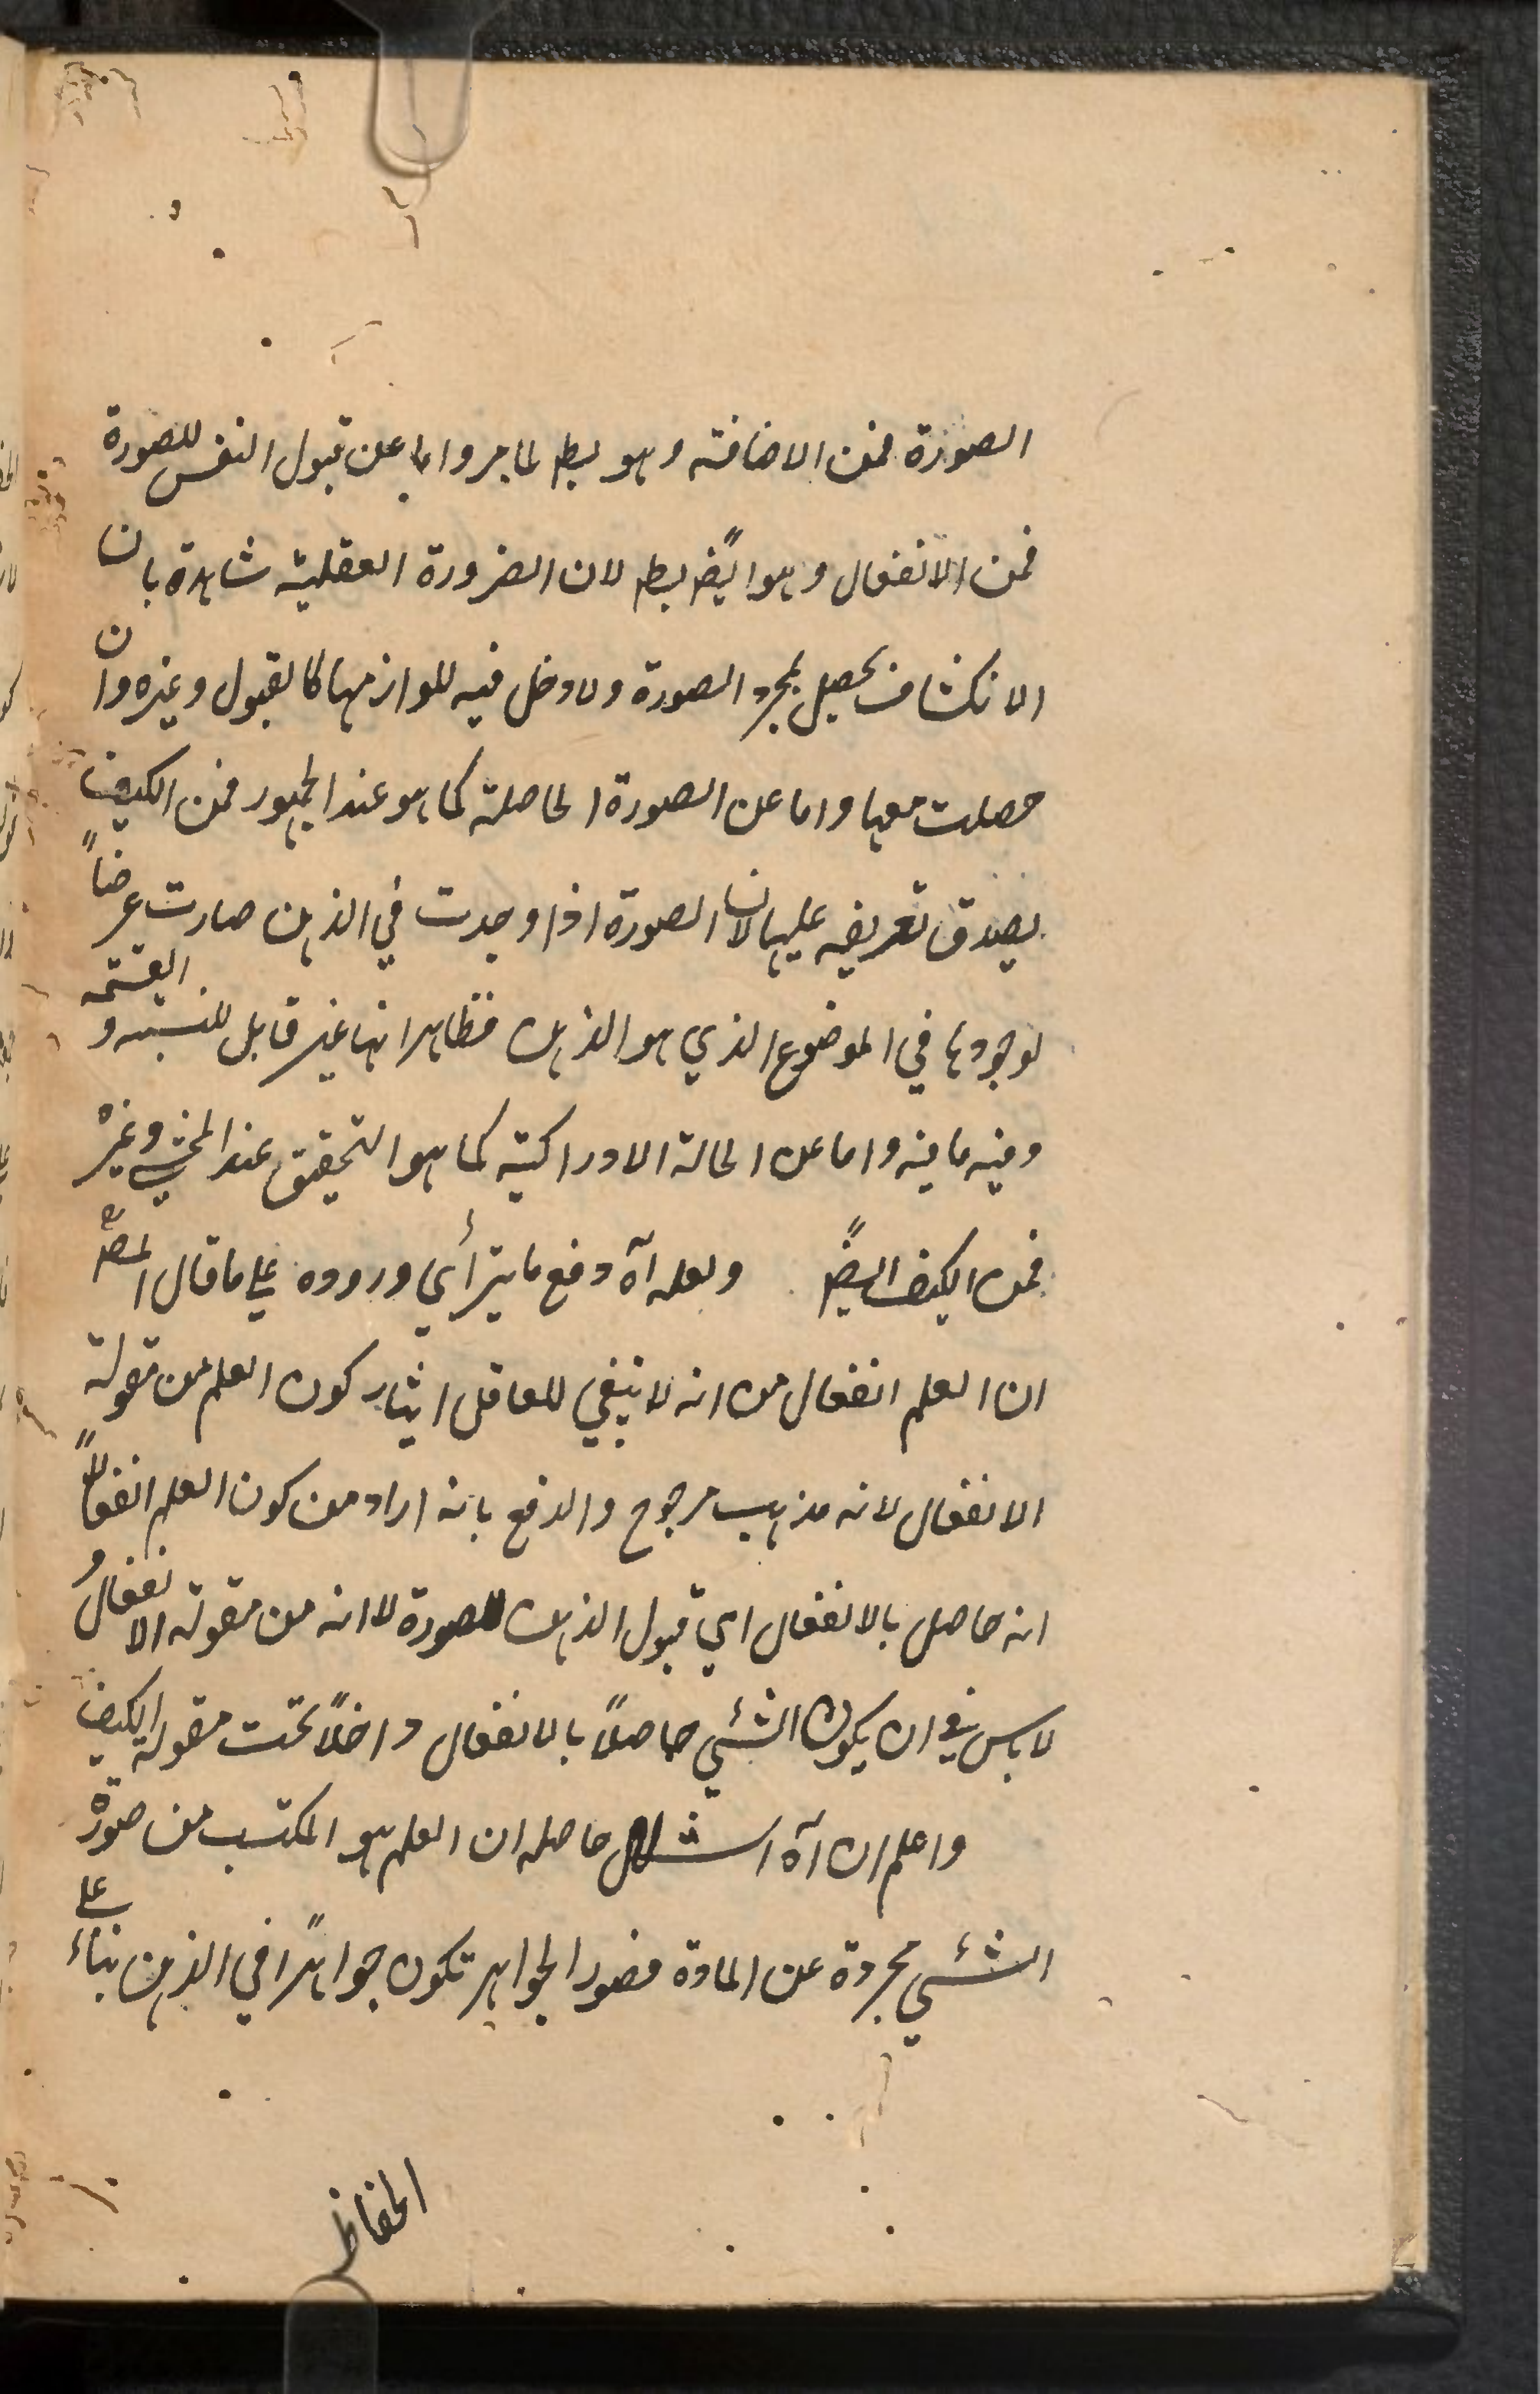 الصورة فمن الاضافة وهو بط لما مر واما عن قبول النفس للصورة
فمن الانفعال وهو ايضً بط لان الضرورة العقلية شاهدة بان
الانكشاف يحصل بمجرد الصورة ولا دخل فيه للوازمها كالقبول وغيره وان
حصلت معها واما عن الصورة الحاصلة كما هو عند الجمهور فمن الكيف
يصدق تعريفه عليها لان الصورة اذا وجدت في الذهن صارت عرضاً
لوجودها في الموضوع الذي هو الذهن فظاهر انها غير قابل للنسبه و القسمة
وفيه ما فيه واما عن الحالة الادراكية كما هو التحقيق عند المحشي وغيره
فمن الكيف ايضً ولعله آه دفع ما يترأى وروده على ما قال المص
ان العلم انفعال من انه لا ينبغي للعاقل ايثار كون العلم من مقولة
الانفعال لانه مذهب مرجوح والدفع بانه اراد من كون العلم انفعالاً
انه حاصل بالانفعال اي قبول الذهن للصورة لا انه من مقولة الانفعال و
لا باس في ان يكون الشئي حاصلاً بالانفعال داخلاً تحت مقولة الكيف
واعلم ان آه اشكال حاصله ان العلم هو المكتسب من صورة
الشئي مجردة عن المادة فصور الجواهر تكون جواهرًا في الذهن بناءً على
الحفاظ